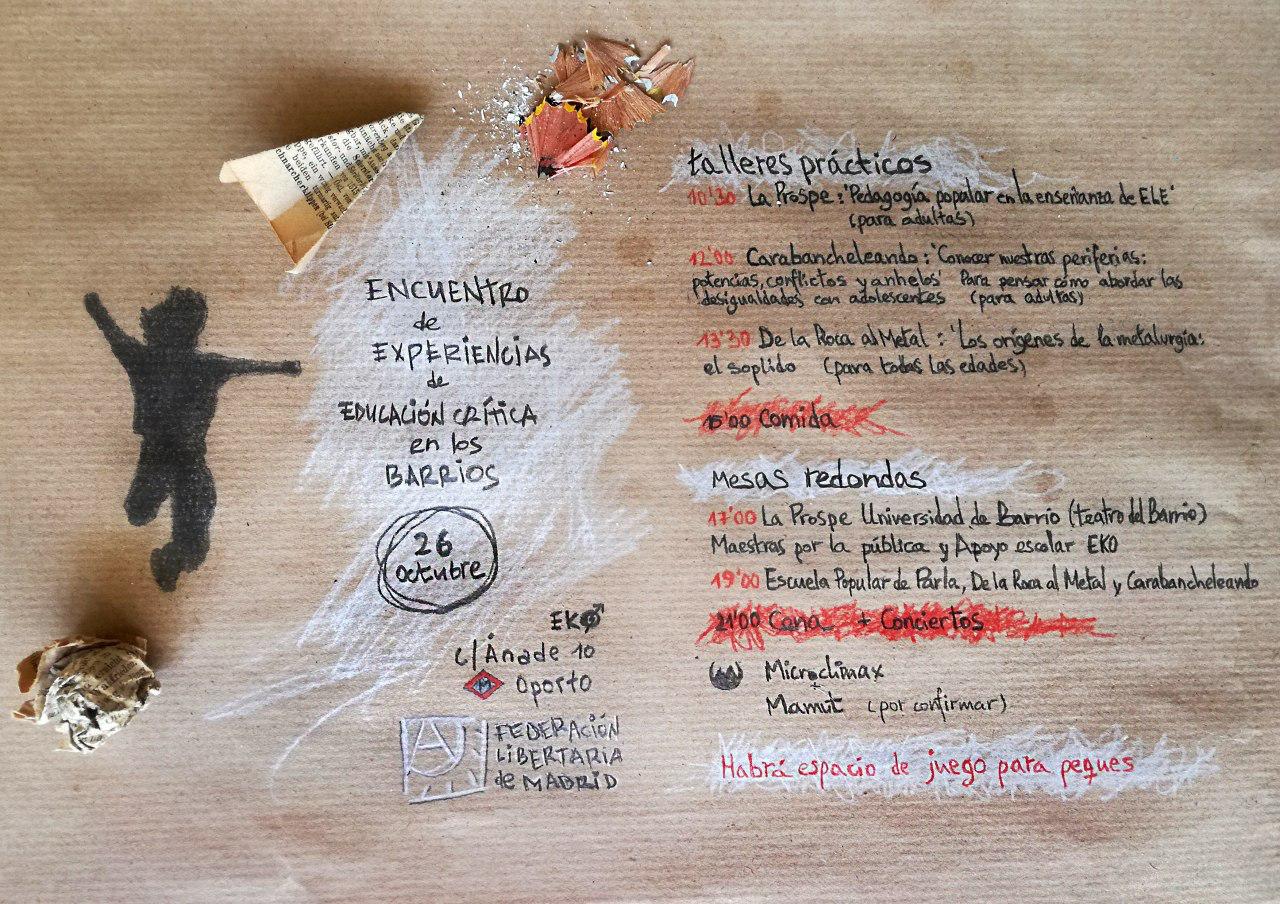 ENCUENTRO
de
EXPERIENCIAS
de
EDUCACIÓN CRÍTICA
en los
BARRIOS
26
octubre
EKO
c/Ánade 10
M Oporto
FEDERACIÓN
LIBERTARIA
de MADRID
talleres prácticos
10'30 La Prospe: 'Pedagogía popular en la enseñanza de ELE'
(para adultas)
12'00 Carabancheleando: 'Conocer nuestras periferias:
potencias, conflictos y anhelos' Para pensar cómo abordar las
desigualdades con adolescentes (para adultas)
13'30 De la Roca al Metal: 'Los orígenes de la metalurgia:
el soplido (para todas las edades)
15'00 Comida
Mesas redondas
17'00 La Prospe Universidad de Barrio (teatro del Barrio)
Maestras por la pública y Apoyo escolar EKO
19'00 Escuela Popular de Parla, De la Roca al Metal y Carabancheleando
21'00 Cena + Conciertos
Microclimax
+
Mamut (por confirmar)
Habrá espacio de juego para peques